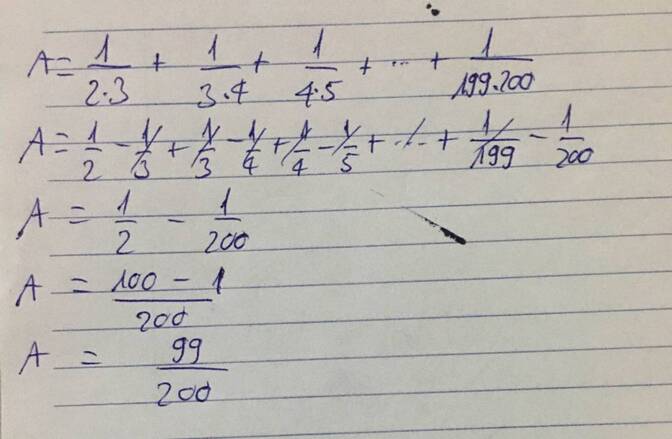 A = 1/2·3 + 1/3·4 + 1/4·5 + ... + 1/199·200
A = 1/2 - 1/3 + 1/3 - 1/4 + 1/4 - 1/5 + ... + 1/199 - 1/200
A = 1/2 - 1/200
A = 100 - 1/200
A = 99/200